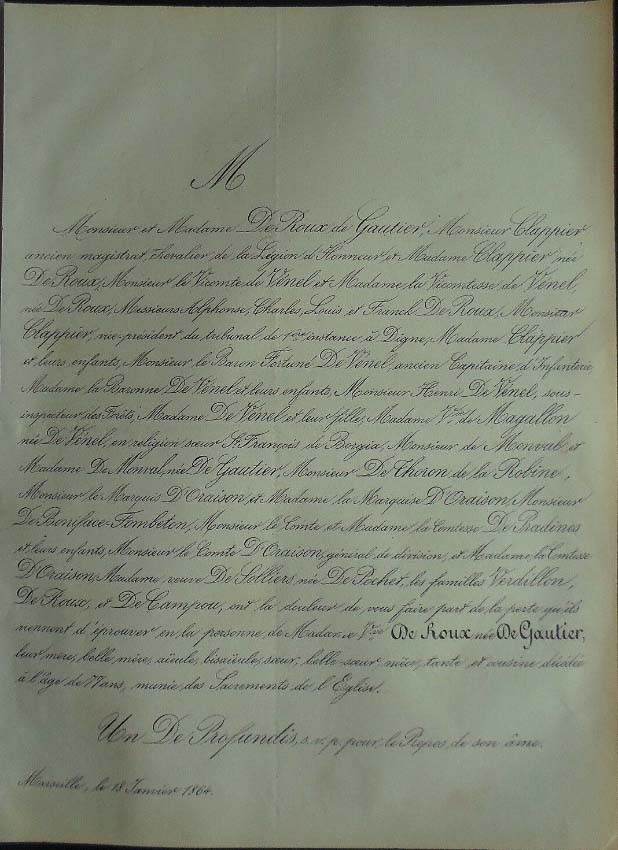 M
Monsieur et Madame De Roux de Gautier, Monsieur Clappier
ancien magistrat, chevalier de la Légion d'Honneur et Madame Clappier, née
De Roux, Monsieur le Vicomte de Vénel et Madame la Vicomtesse de Vénel,
née De Roux, Messieurs Alphonse, Charles, Louis et Franck De Roux, Monsieur
Clappier, vice-président du tribunal de 1ère instance à Digne, Madame Clappier
et leurs enfants, Monsieur le Baron Fortuné De Vénel, ancien Capitaine d'Infanterie,
Madame la Baronne De Vénel et leurs enfants, Monsieur Henri De Vénel, sous-
inspecteur des Forêts, Madame De Vénel et leur fille, Madame Vve de Magallon
née De Vénel, en religion sœur St François de Borgia, Monsieur de Monval et
Madame De Monval, née De Gautier, Monsieur De Thoron de la Robine,
Monsieur le Marquis D'Oraison, et Madame la Marquise D'Oraison, Monsieur
De Boniface-Fombeton, Monsieur le Comte et Madame la Comtesse De Pradines
et leurs enfants, Monsieur le Comte D'Oraison, général de division, et Madame la Comtesse
D'Oraison, Madame veuve De Solliers née De Pochet, les familles Verdillon,
De Roux, et De Campou, ont la douleur de vous faire part de la perte qu'ils
viennent d'éprouver en la personne de Madame Vve De Roux née De Gautier,
leur mère, belle mère, aïeule, bisaïeule, sœur, belle-sœur nièce, tante et cousine décédée
à l'âge de 77 ans, munie des Sacrements de l'Eglise.
Un De Profundis, s. v. p. pour le Repos de son âme.
Marseille, le 18 Janvier 1864.